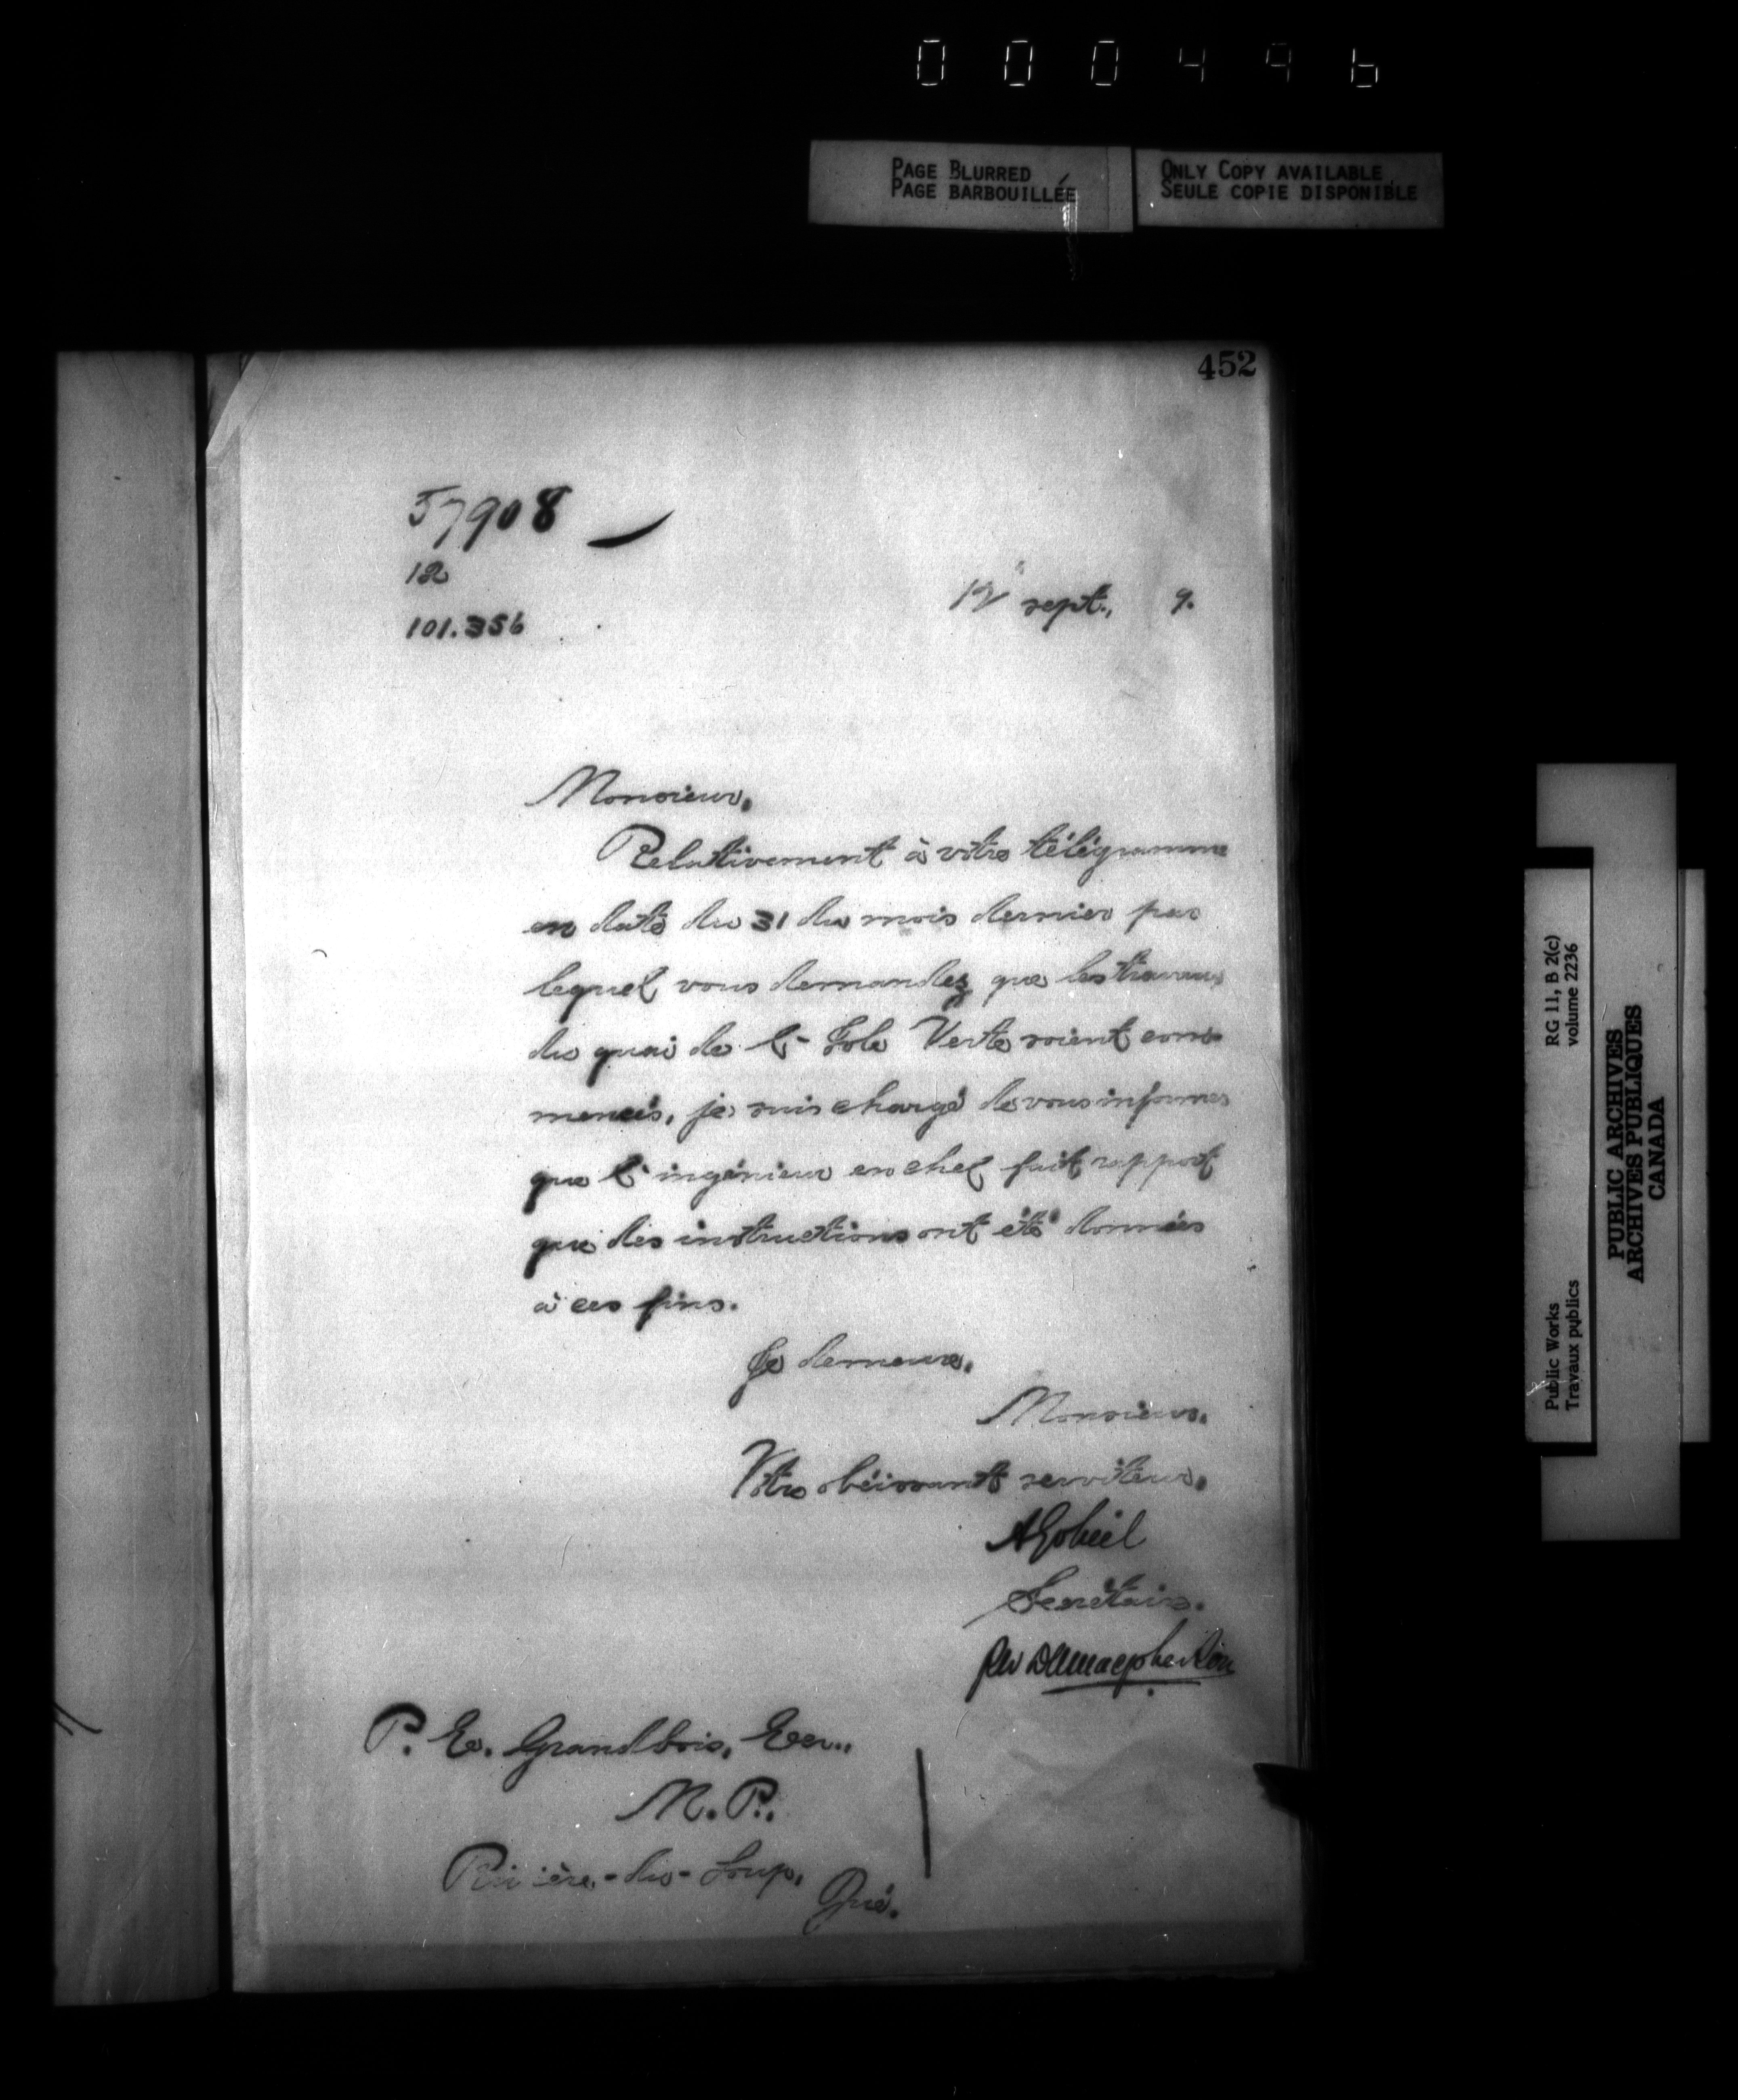 000496
PAGE BLURRED
PAGE BARBOUILLÉE
ONLY COPY AVAILABLE
SEULE COPIE DISPONIBLE
452
57908
12
101.356
12" sept., 9.
Monsieur,
Relativement à votre télégramme
en date du 31 du mois dernier par
lequel vous demandez que les travaux
du quai de l'Isle Verte soient com-
mencés, je suis chargé de vous informer
que l'ingénieur en chef fait rapport
que des instructions ont été données
à ces fins.
Je demeure,
Monsieur,
Votre obéissant serviteur,
A Gobeil
Secrétaire.
per D Macpherson
P. E. Grandbois, Ecr.,
M.P.,
Rivière-du-Loup,
Qué.
Public Works
Travaux publics
RG 11, B 2(c)
volume 2236
PUBLIC ARCHIVES
ARCHIVES PUBLIQUES
CANADA